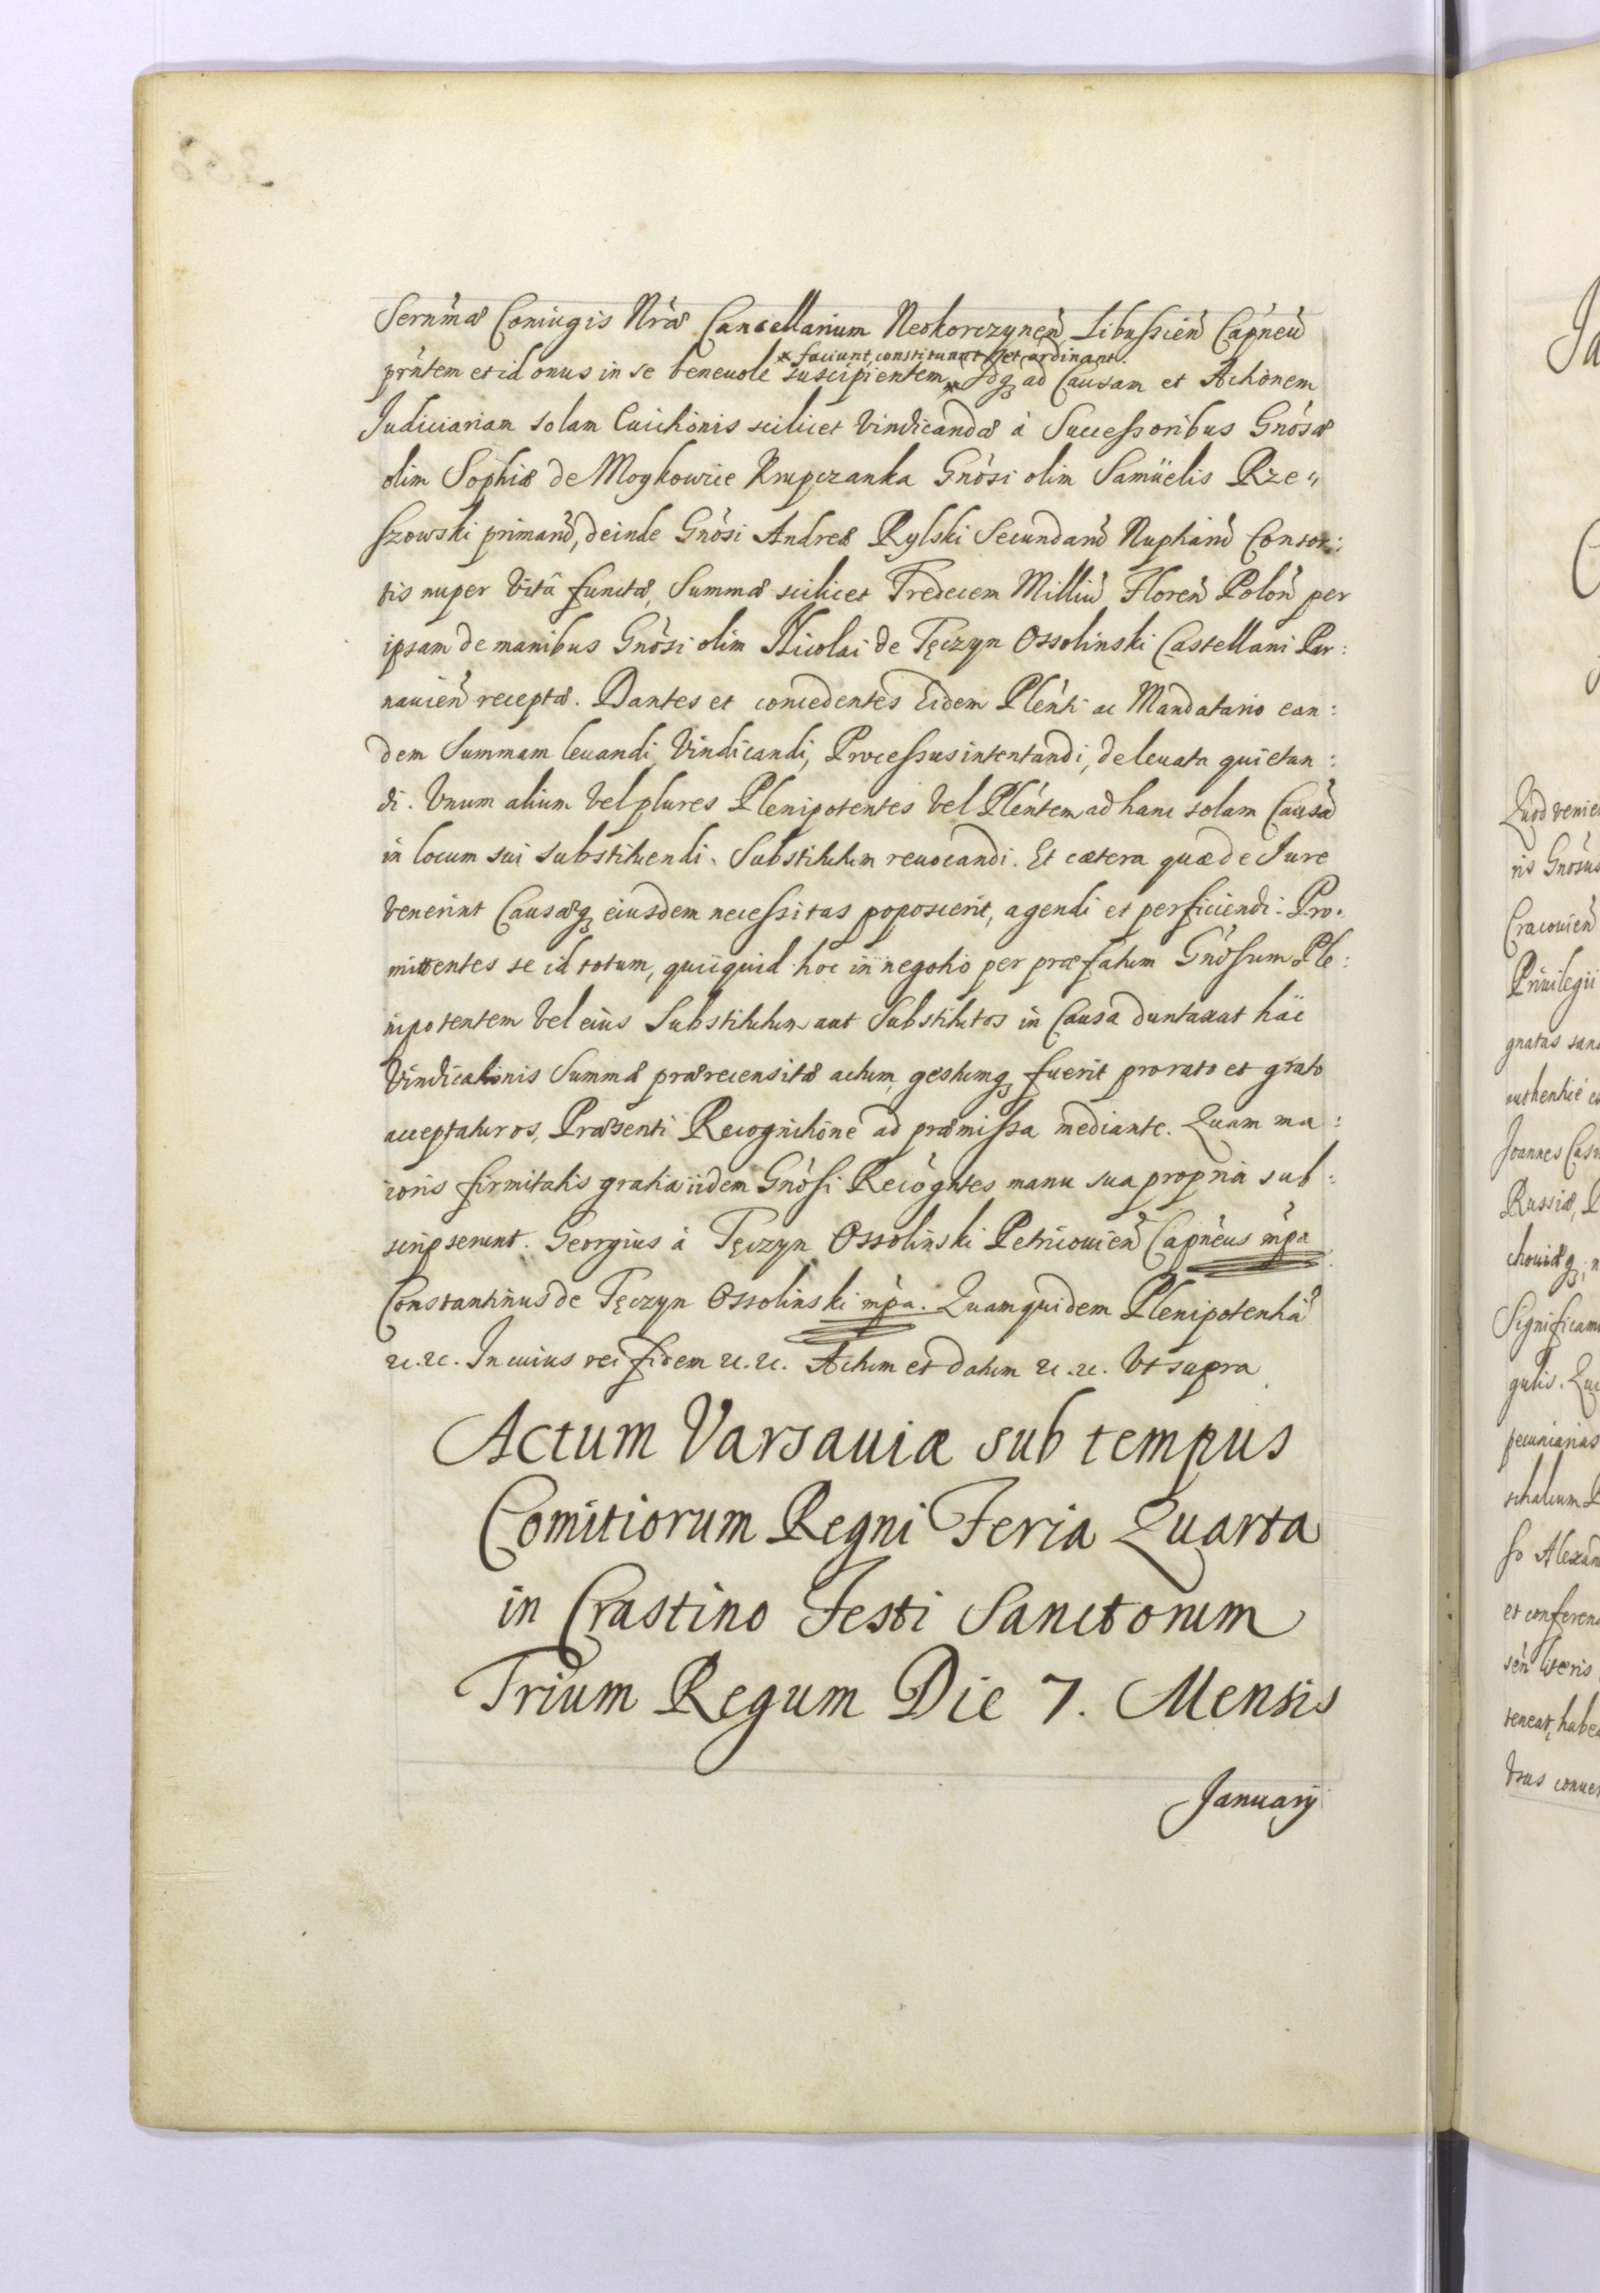 Sernmæ Coniugis Nræ Cancellarium Neokorczynen̄ Libussien̄ Capneū
* faciunt, constituunt et ordinant.
prntem et id onus in se beneuole suscipientem * Idq ad Causam et Actionem
Judiciariam solam Euictionis scilicet Vindicandæ à Successoribus Gnosæ
olim Sophiæ de Moykowice Krupczanka Gnosi olim Samüelis Rze„
szowski primarū, deinde Gnosi Andreæ Rylski Secundarū Nuptiarū Consor:
tis nuper Vitâ functæ, Summæ scilicet Tredecem Milliū Floren̄ Polon̄ per
ipsam de manibus Gnosi olim Nicolai de Tęczyn Ossolinski Castellani Par:
nauien̄ receptæ. Dantes et concedentes Eidem Plenti ac Mandatario ean:
dem Summam leuandi, Vindicandi, Processus intentandi, de leuata quietan:
di. Vnum alium Vel plures Plenipotentes Vel Plentem ad hanc solam Causā
in locum sui substituendi. Substitutum reuocandi. Et cætera quæ de Jure
Venerint Causæq eiusdem necessitas poposcerit, agendi et perficiendi. Pro:
mittentes se id totum, quiquid hoc in negotio per præfatum Gnosum Ple:
nipotentem Vel eius Substitutum aut Substitutos in Causa duntaxat hac
Vindicationis Summæ prærecensitæ actum, gestumq fuerit pro rato et grato
accepturos, Præsenti Recognitione ad præmissa mediante. Quam ma:
ioris firmitatis gratia iidem Gnosi Recogntes manu sua propria sub:
scripserunt. Georgius à Tęczyn Ossolinski Petricouien̄ Capneus mpa
Constantinus de Tęczyn Ossolinski mpa. Quamquidem Plenipotentiā
etc. etc. In cuius rei fidem etc. etc. Actum et datum etc. etc. Vt supra
Actum Varsauiæ sub tempus
Comitiorum Regni Feria Quarta
in Crastino Festi Sanctorum
Trium Regum Die 7. Mensis
Januarij